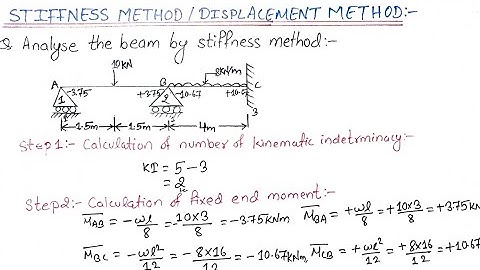 STIFFNESS METHOD / DISPLACEMENT METHOD:-
Q Analyse the beam by stiffness method:-
10KN 8KN/m
A -3.75 +3.75 B -10.67 +10.67 C
1 2 3
1.5m 1.5m 4m
Step1:- Calculation of number of kinematic indetrminacy:-
KI = 5-3
= 2
Step2:- Calculation of fixed end moment:-
M̅AB = -wl/8 = -10×3/8 = -3.75KNm M̅BA = +wl/8 = +10×3/8 = +3.75KN
M̅BC = -wl²/12 = -8×16/12 = -10.67KNm, M̅CB = +wl²/12 = +8×16/12 = +10.67